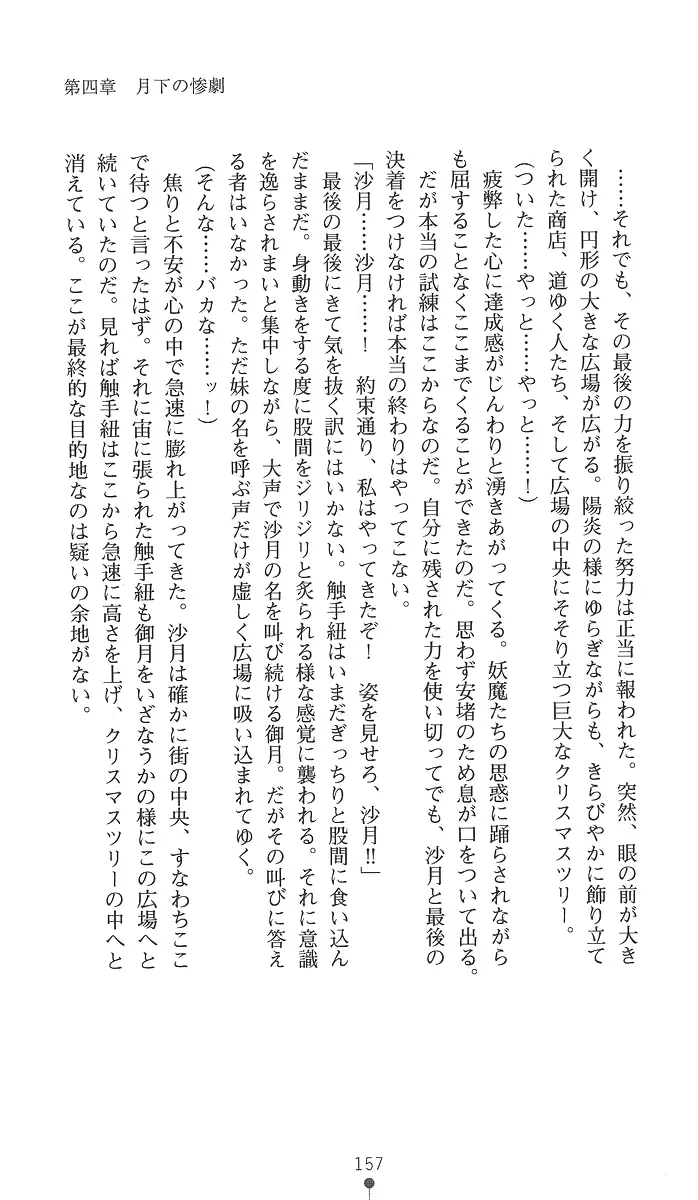 第四章　月下の惨劇
……それでも、その最後の力を振り絞った努力は正当に報われた。突然、眼の前が大き
く開け、円形の大きな広場が広がる。陽炎の様にゆらぎながらも、きらびやかに飾り立て
られた商店、道ゆく人たち、そして広場の中央にそそり立つ巨大なクリスマスツリー。
（ついた……やっと……やっと……！）
疲弊した心に達成感がじんわりと湧きあがってくる。妖魔たちの思惑に踊らされながら
も屈することなくここまでくることができたのだ。思わず安堵のため息が口をついて出る。
だが本当の試練はここからなのだ。自分に残された力を使い切ってでも、沙月と最後の
決着をつけなければ本当の終わりはやってこない。
「沙月……沙月……！　約束通り、私はやってきたぞ！　姿を見せろ、沙月‼」
最後の最後にきて気を抜く訳にはいかない。触手紐はいまだぎっちりと股間に食い込ん
だままだ。身動きをする度に股間をジリジリと炙られる様な感覚に襲われる。それに意識
を逸らされまいと集中しながら、大声で沙月の名を叫び続ける御月。だがその叫びに答え
る者はいなかった。ただ妹の名を呼ぶ声だけが虚しく広場に吸い込まれてゆく。
（そんな……バカな……ッ！）
焦りと不安が心の中で急速に膨れ上がってきた。沙月は確かに街の中央、すなわちここ
で待つと言ったはず。それに宙に張られた触手紐も御月をいざなうかの様にこの広場へと
続いていたのだ。見れば触手紐はここから急速に高さを上げ、クリスマスツリーの中へと
消えている。ここが最終的な目的地なのは疑いの余地がない。
157